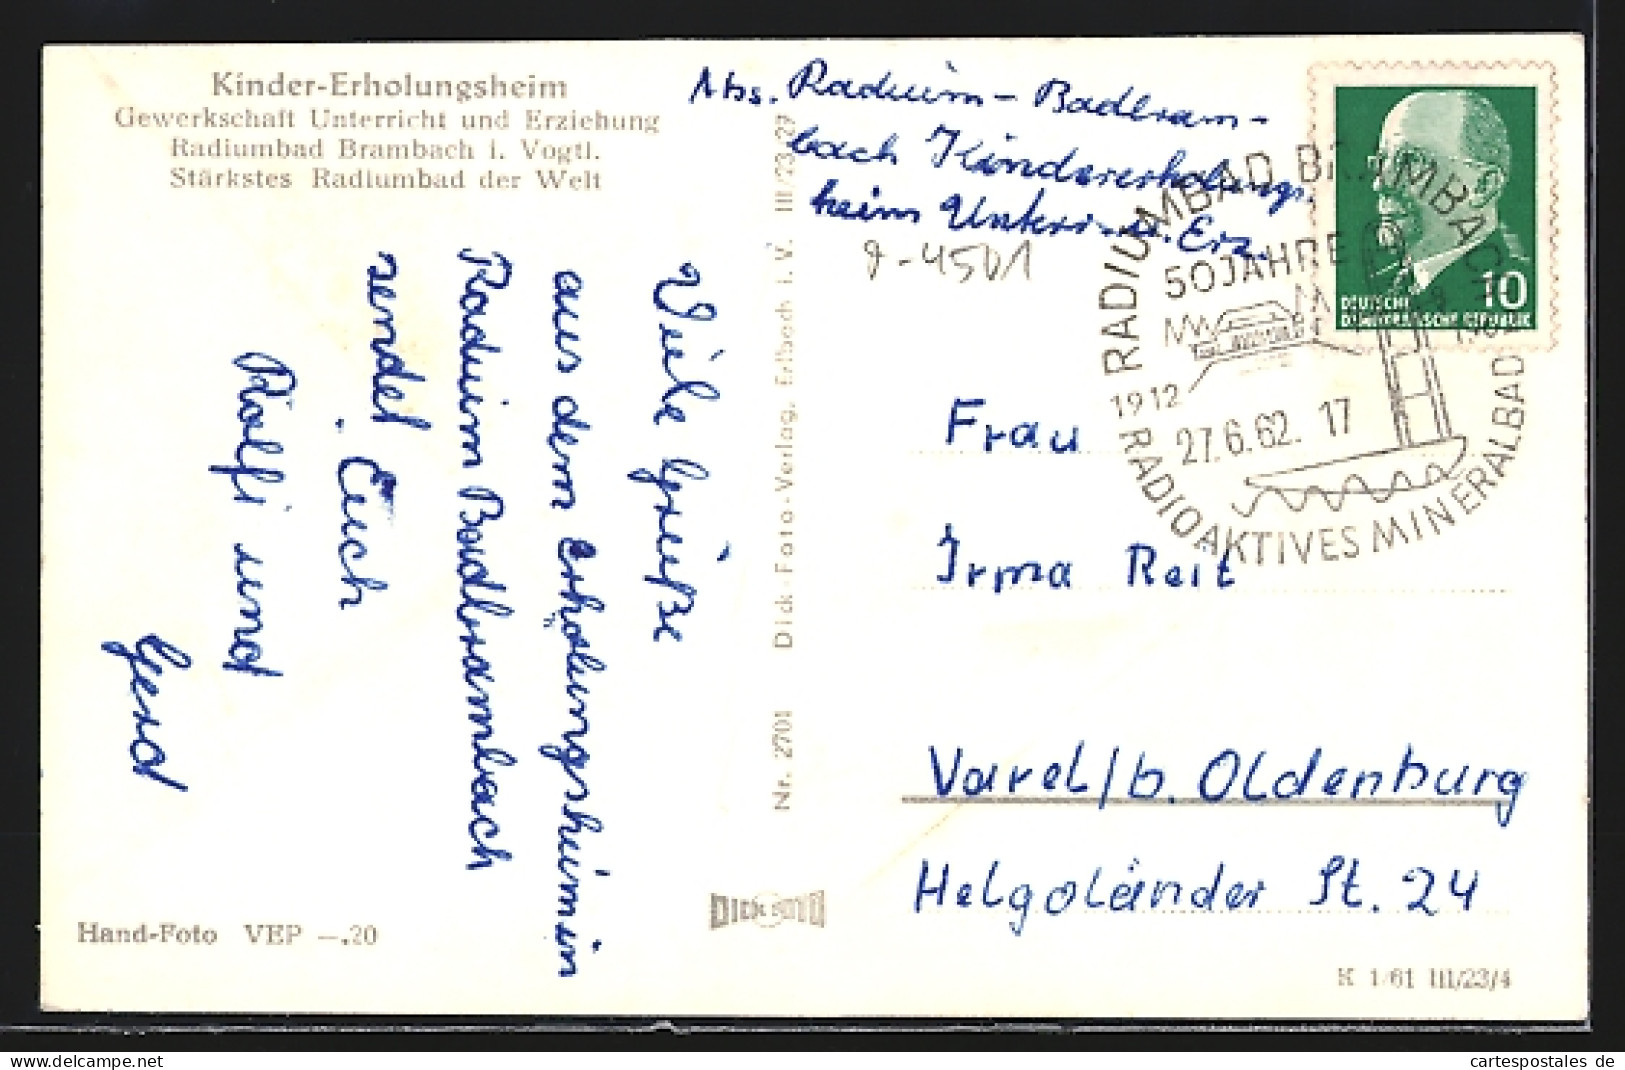 Kinder-Erholungsheim
Gewerkschaft Unterricht und Erziehung
Radiumbad Brambach i. Vogtl.
Stärkstes Radiumbad der Welt
Viele Grüße
aus dem Erholungsheim in
Radium Badbrambach
sendet Euch
Rolfi und
Gerd
Hand-Foto VEP —.20
Nr. 2701 Dick-Foto-Verlag, Erlbach i. V. III/23/27
DICK FOTO
Abs. Radium-Badbram-
bach Kindererholungs.
heim Unterr. u. Erz.
RADIUMBAD BRAMBACH
50 JAHRE
1912
27.6.62. 17
RADIOAKTIVES MINERALBAD
10
DEUTSCHE
DEMOKRATISCHE REPUBLIK
Frau
Irma Reit
Varel/b. Oldenburg
Helgoländer St. 24
K 1/61 III/23/4
cartespostales de